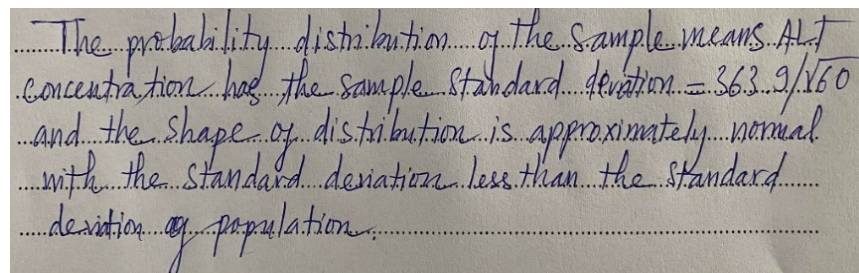 The probability distribution of the sample means ALT
concentration has the sample standard deviation = 363.9/√60
and the shape of distribution is approximately normal
with the standard deviation less than the standard
deviation of population.